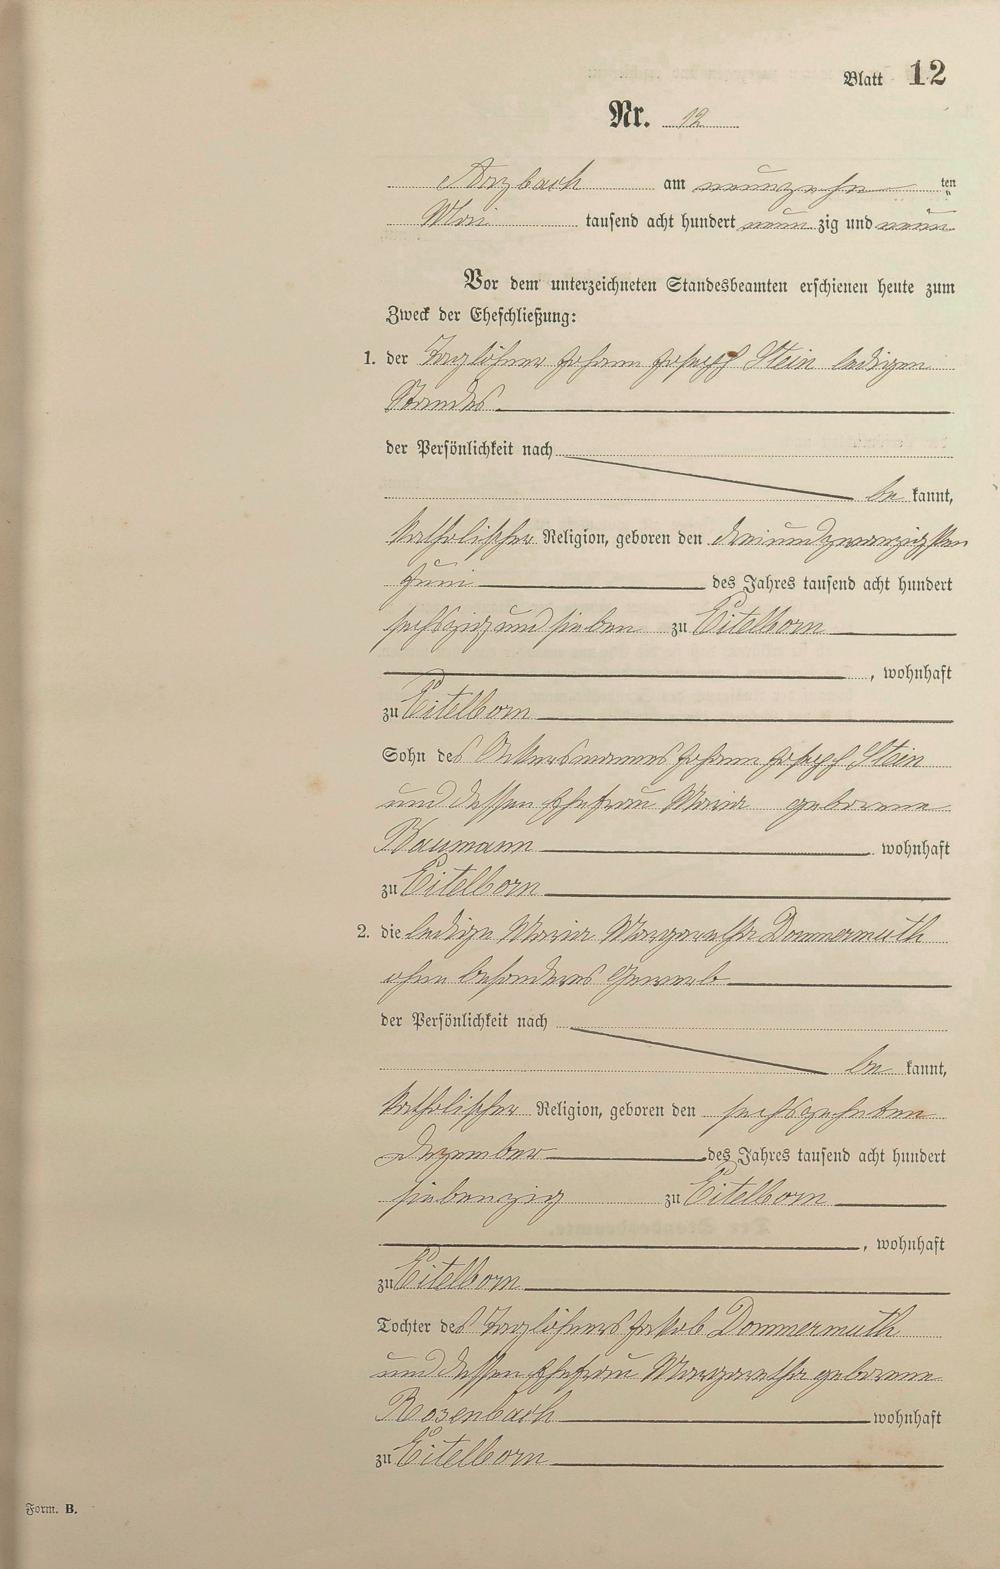 Blatt 12
Nr. 12
Arzbach am neunzehn ten
Mai tausend acht hundert neun zig und neun
Vor dem unterzeichneten Standesbeamten erschienen heute zum
Zweck der Eheschließung:
1. der Taglöhner Johann Joseph Stein ledigen
Standes
der Persönlichkeit nach
be kannt,
katholischer Religion, geboren den dreiundzwanzigsten
Juni des Jahres tausend acht hundert
sechszig und sieben zu Eitelborn
, wohnhaft
zu Eitelborn
Sohn des Ackersmannes Johann Joseph Stein
und dessen Ehefrau Maria geborene
Baumann wohnhaft
zu Eitelborn
2. die ledige Maria Margaretha Dommermuth
ohne besonderes Gewerb
der Persönlichkeit nach
be kannt,
katholischer Religion, geboren den sechszehnten
Dezember des Jahres tausend acht hundert
siebenzig zu Eitelborn
, wohnhaft
zu Eitelborn
Tochter des Taglöhners Jakob Dommermuth
und dessen Ehefrau Margaretha geborene
Rosenbach wohnhaft
zu Eitelborn
Form. B.